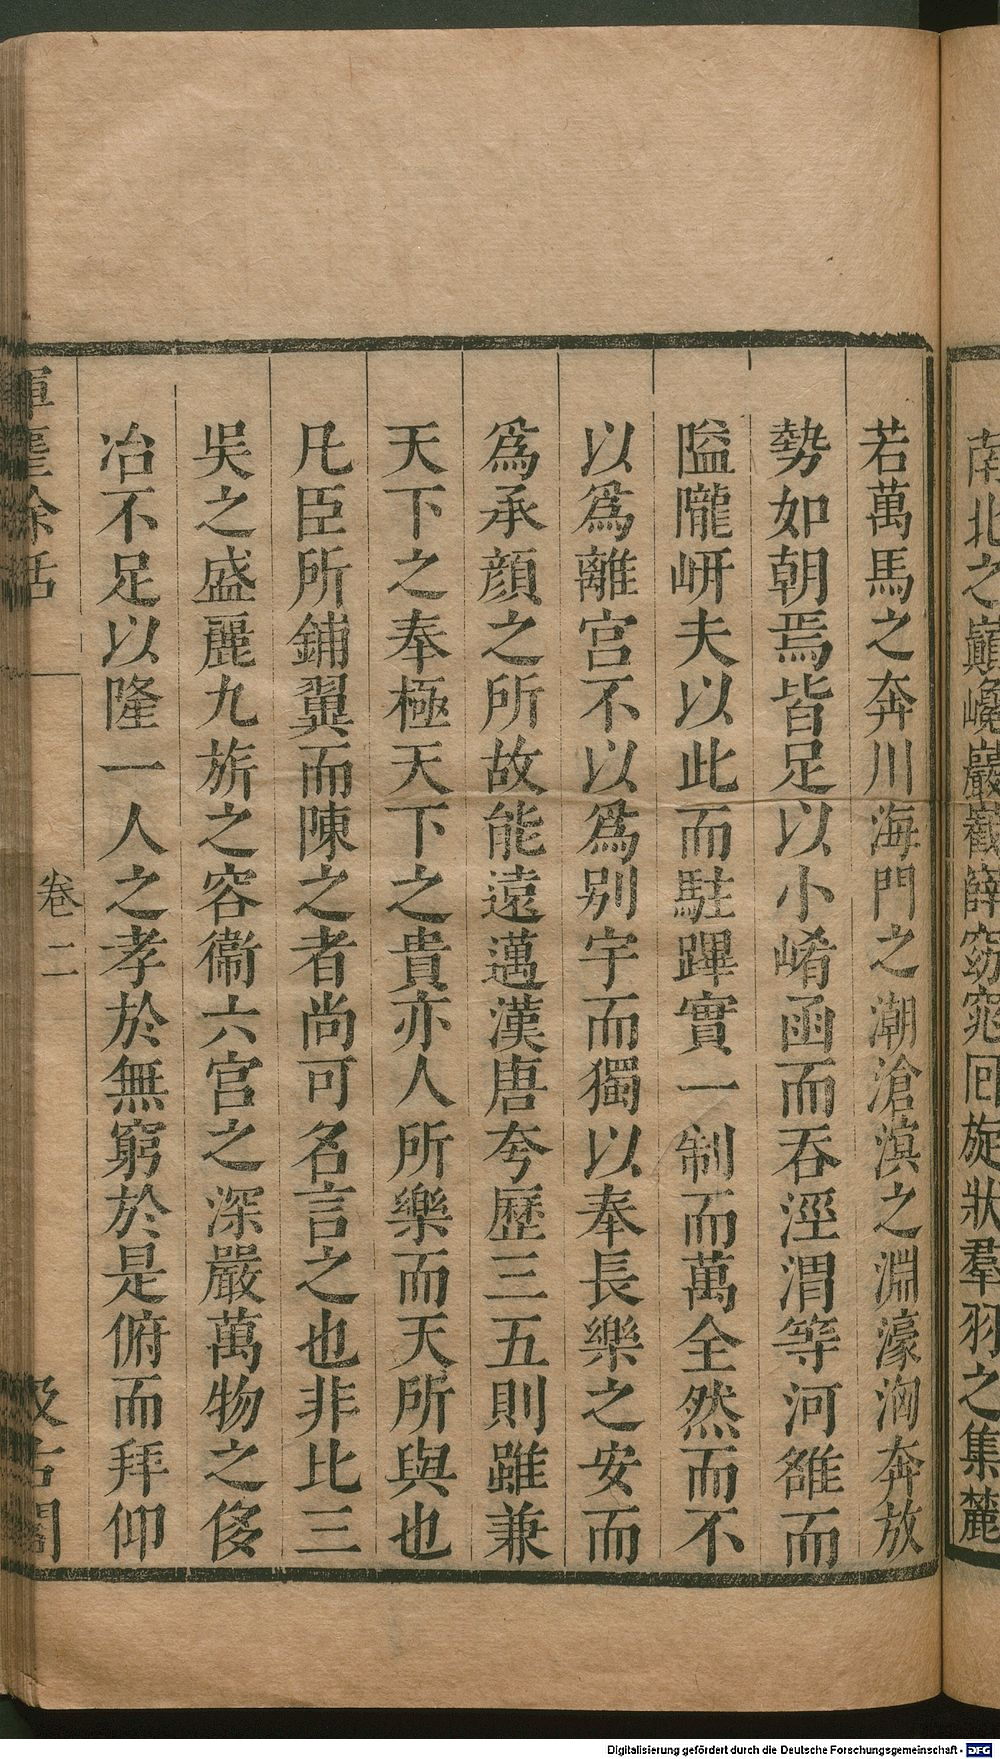 南北之巔巉巖嶻嶭窈窕囘旋狀羣羽之集麓
若萬馬之奔川海門之潮滄溟之淵濠洶奔放
勢如朝焉皆足以小崤函而吞涇渭等河雒而
隘隴岍夫以此而駐蹕實一制而萬全然而不
以爲離宮不以爲别宇而獨以奉長樂之安而
爲承顔之所故能遠邁漢唐夸歷三五則雖兼
天下之奉極天下之貴亦人所樂而天所與也
凡臣所鋪翼而陳之者尚可名言之也非比三
吳之盛麗九旂之容衞六宮之深嚴萬物之侈
冶不足以隆一人之孝於無窮於是俯而拜仰
卷二
汲古閣
Digitalisierung gefördert durch die Deutsche Forschungsgemeinschaft - DFG